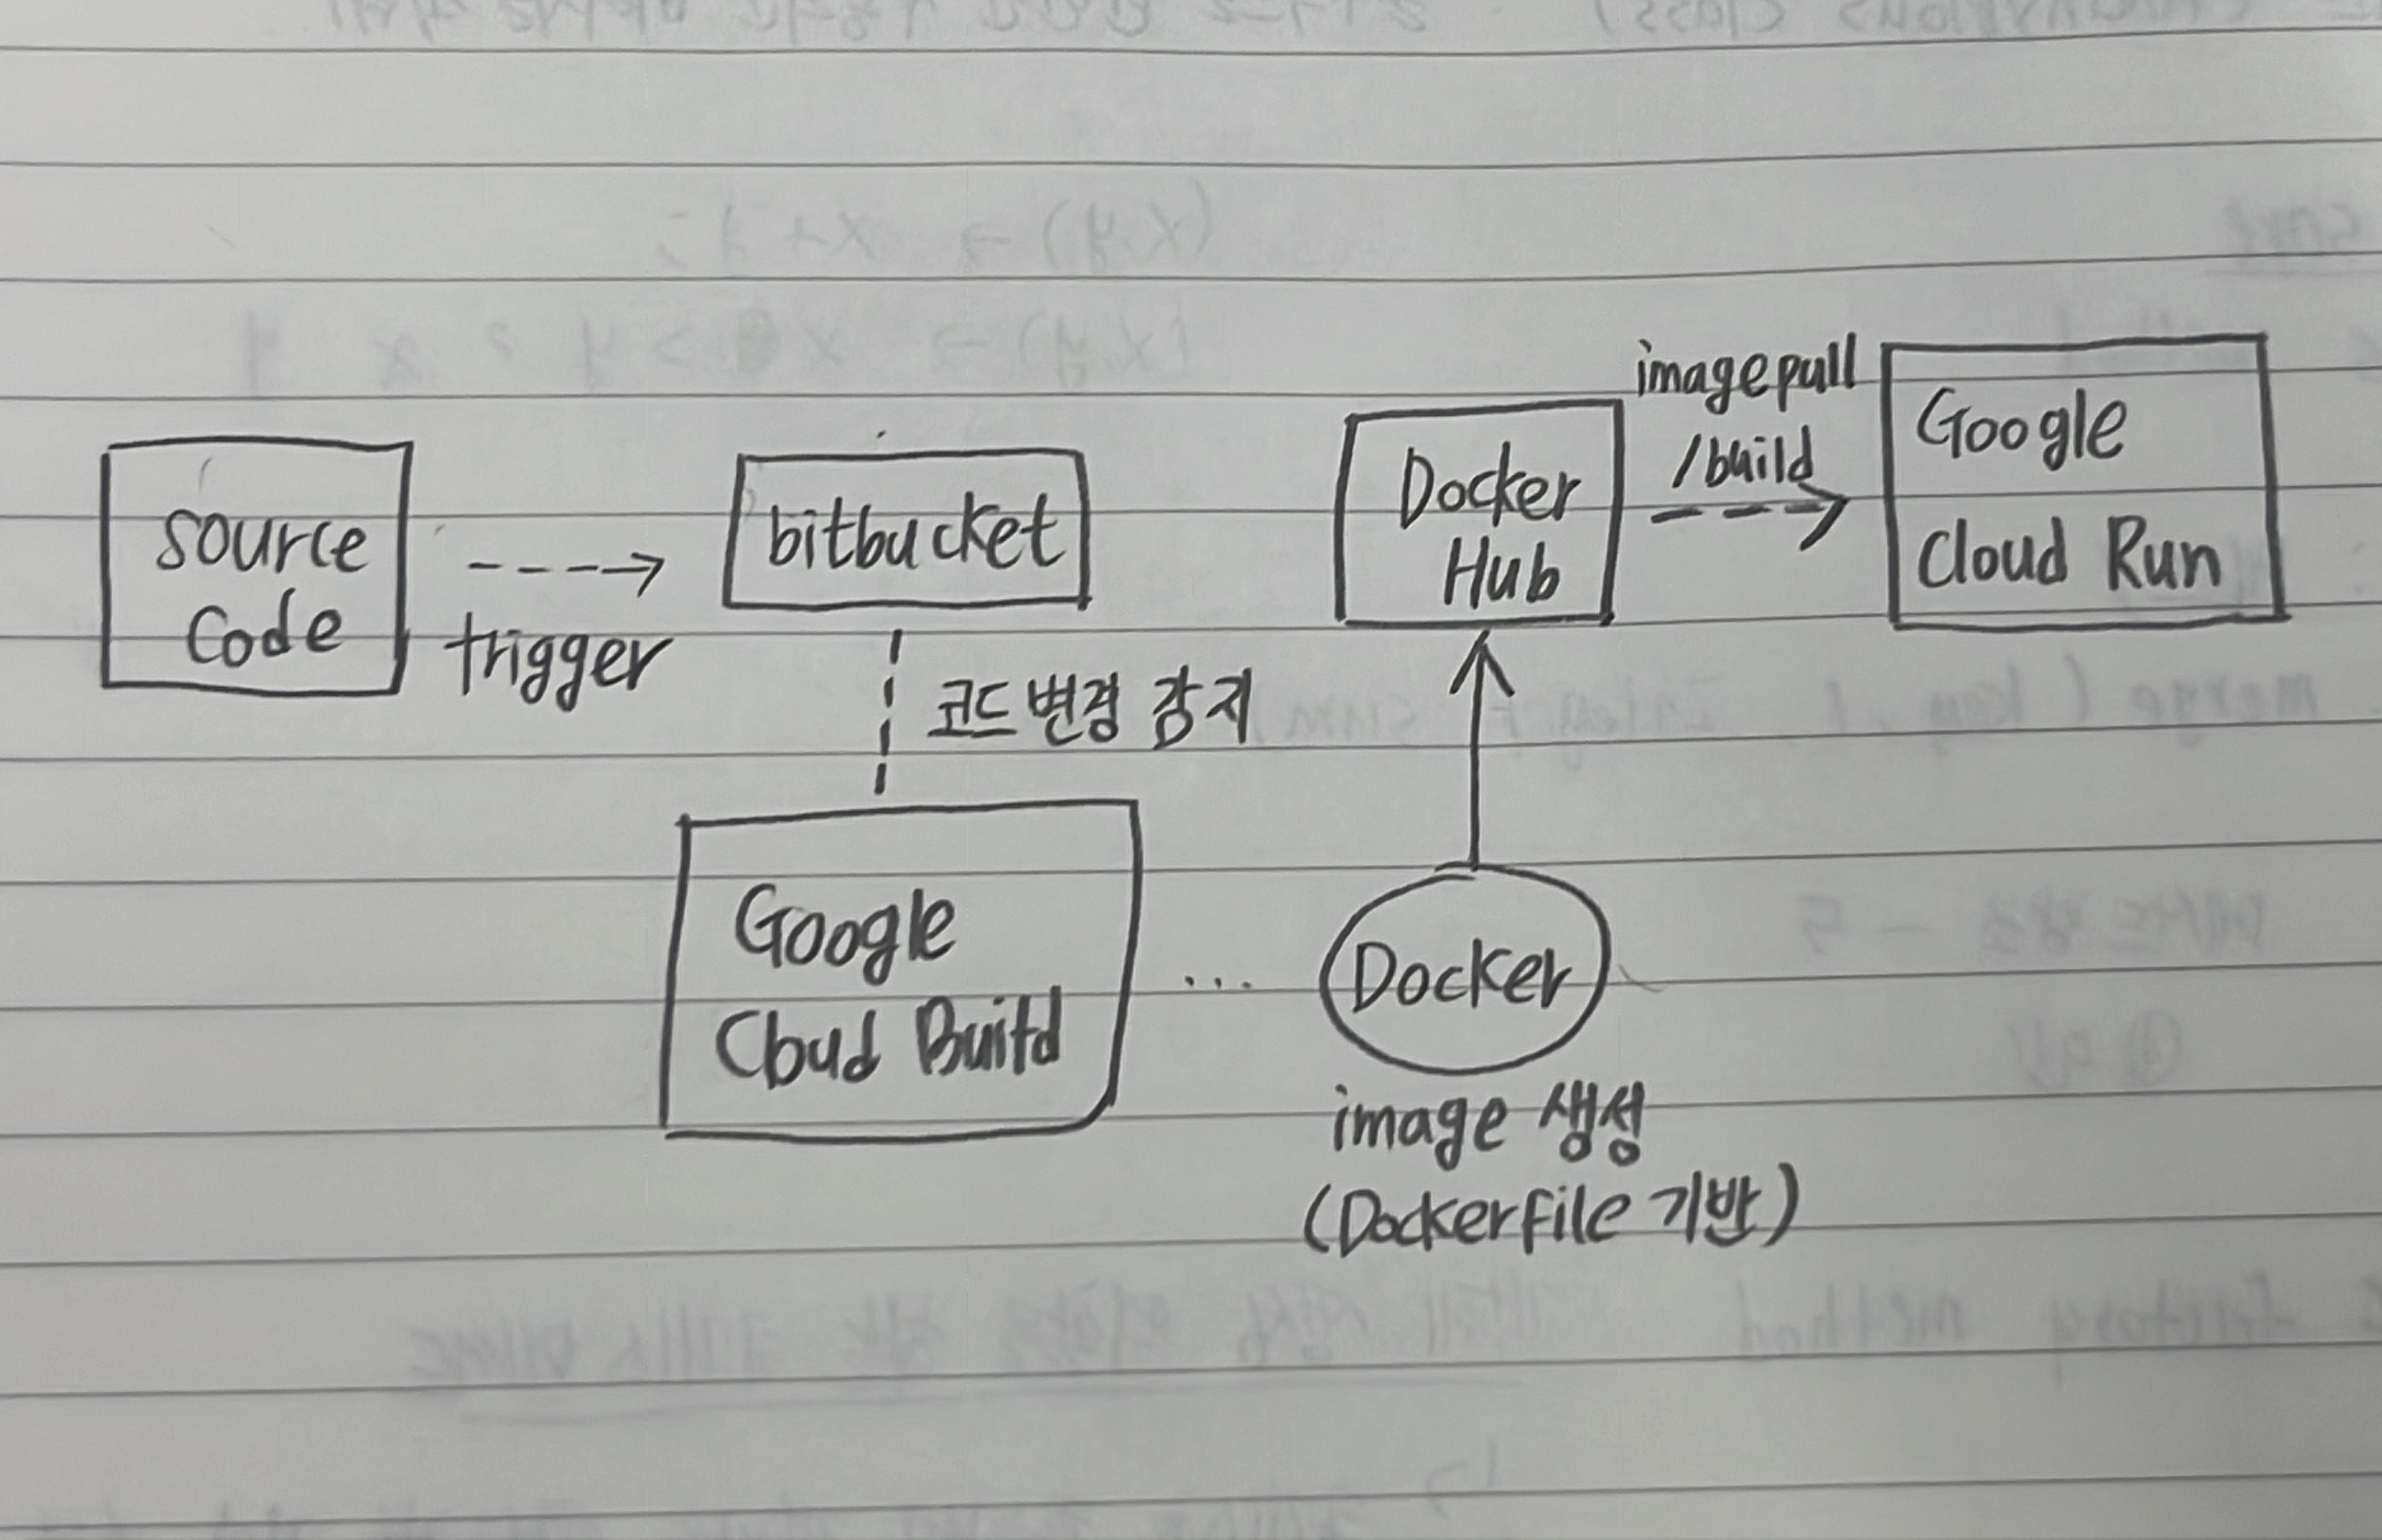 source
code
trigger
bitbucket
코드 변경 감지
Google
Cloud Build
...
Docker
image 생성
(Dockerfile 기반)
Docker
Hub
image pull
/build
Google
Cloud Run